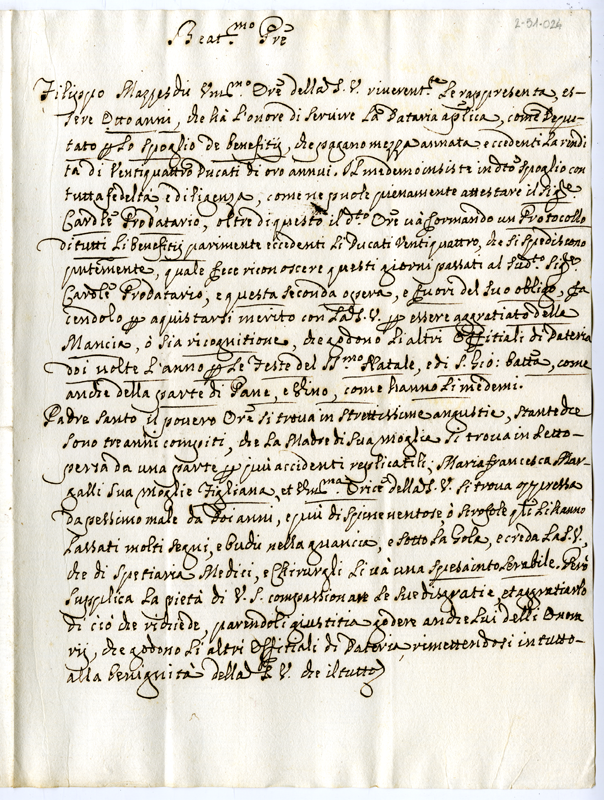 2-51-024
Beat.mo Pre
Filippo Um.mo Ore della S. V. riverent.te Le rappresenta, es-
sere Otto anni, che hà L'onore di servire La Dataria aplica, come Depu-
tato p Lo Spoglio de Benefitij, che pagano mezza annata eccedenti La rendi
ta di Ventiquattro Ducati di oro annui. Il medemo insiste in dto spoglio con
tutta fedeltà e diligenza, come ne puole pienamente attestare il Sig.r
Cardle Prodatario, oltre di questo il dto Ore và formando un Protocollo
di tutti Li Benefitij parimente eccedenti Li Ducati Ventiquattro, che si spediscono
, quale fece riconoscere questi giorni passati al Sud.to Sig.r
Cardle Prodatario, e questa seconda opera, e fuori del suo obligo, fa
cendolo p aquistarsi merito con La S. V. p essere aggratiato della
Mancia, ò sia ricognitione, che godono Li altri Offitiali di Dateria
doi volte L'anno p Le Feste del SS.mo Natale, e di S. Gio: Batta, come
anche della parte di Pane, e Vino, come hanno Li medemi.
Padre Santo il povero Ore si trova in strettissime angustie, stante che
sono tre anni compiti, che La Madre di Sua moglie si trova in Letto
persa da una parte p più accidenti replicatili; Maria Francesca Mar-
galli sua moglie Figliana, et Um.ma Orice della S. V. si trova oppressa
da pessimo male da doi anni, e più di spine ventose, ò scrofole Li hanno
Lassati molti segni, e buchi nella guancia, e sotto La Gola, e creda La S. V.
che di Spetiaria Medici, e Chirurghi Li và una spesa intolerabile. Però
supplica La pietà di V. S. compassionare Le sue disgratie, et aggratiarlo
di ciò che richiede, parendoli giustitia godere anche Lui delli Onora
rij, che godono Li altri Offitiali di Dataria, rimettendosi in tutto
alla benignità della S. V. che il tutto